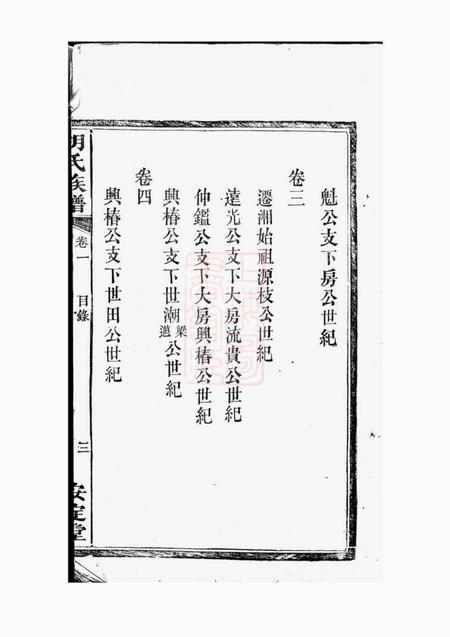 魁公支下房公世紀
卷三
遷湘始祖源枝公世紀
遠光公支下大房流貴公世紀
仲鑑公支下大房興椿公世紀
興椿公支下世潮梁公世紀
卷四
興椿公支下世田公世紀
胡氏族譜
卷一
目錄
三
安定堂